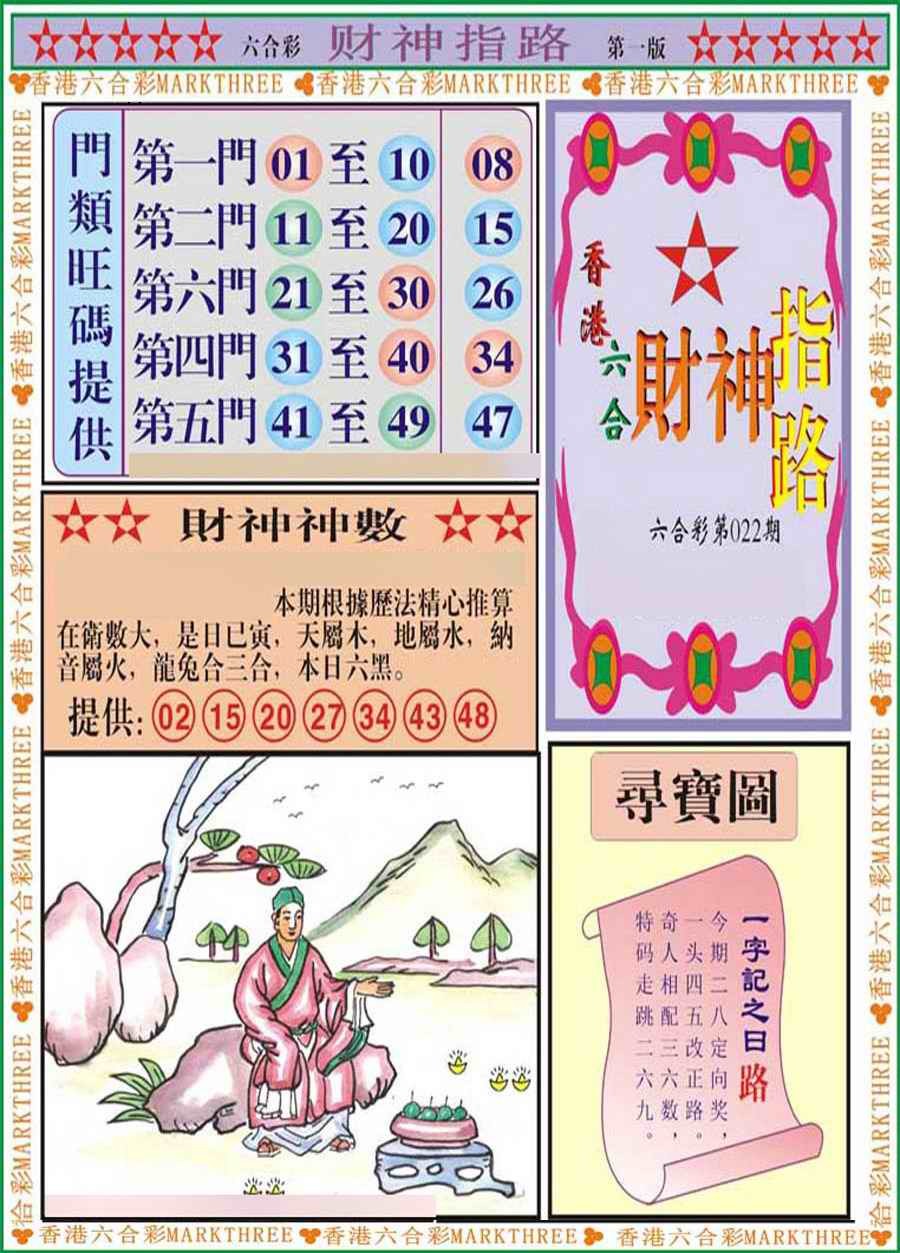 六合彩 财神指路 第一版
香港六合彩MARKTHREE 香港六合彩MARKTHREE 香港六合彩MARKTHREE
香港六合彩MARKTHREE 香港六合彩MARKTHREE 香港六合彩MARKTHREE
門類旺碼提供
第一門 01 至 10 08
第二門 11 至 20 15
第六門 21 至 30 26
第四門 31 至 40 34
第五門 41 至 49 47
香港六合
財神指路
六合彩第022期
財神神數
本期根據歷法精心推算
在衛數大，是日已寅，天屬木，地屬水，納
音屬火，龍兔合三合，本日六黑。
提供: 02 15 20 27 34 43 48
尋寶圖
一字記之曰 路
今期二八定向奖，
一头四五改正路。
奇人相配三六数，
特码走跳二六九。
香港六合彩MARKTHREE 香港六合彩MARKTHREE 香港六合彩MARKTHREE
香港六合彩MARKTHREE 香港六合彩MARKTHREE 香港六合彩MARKTHREE